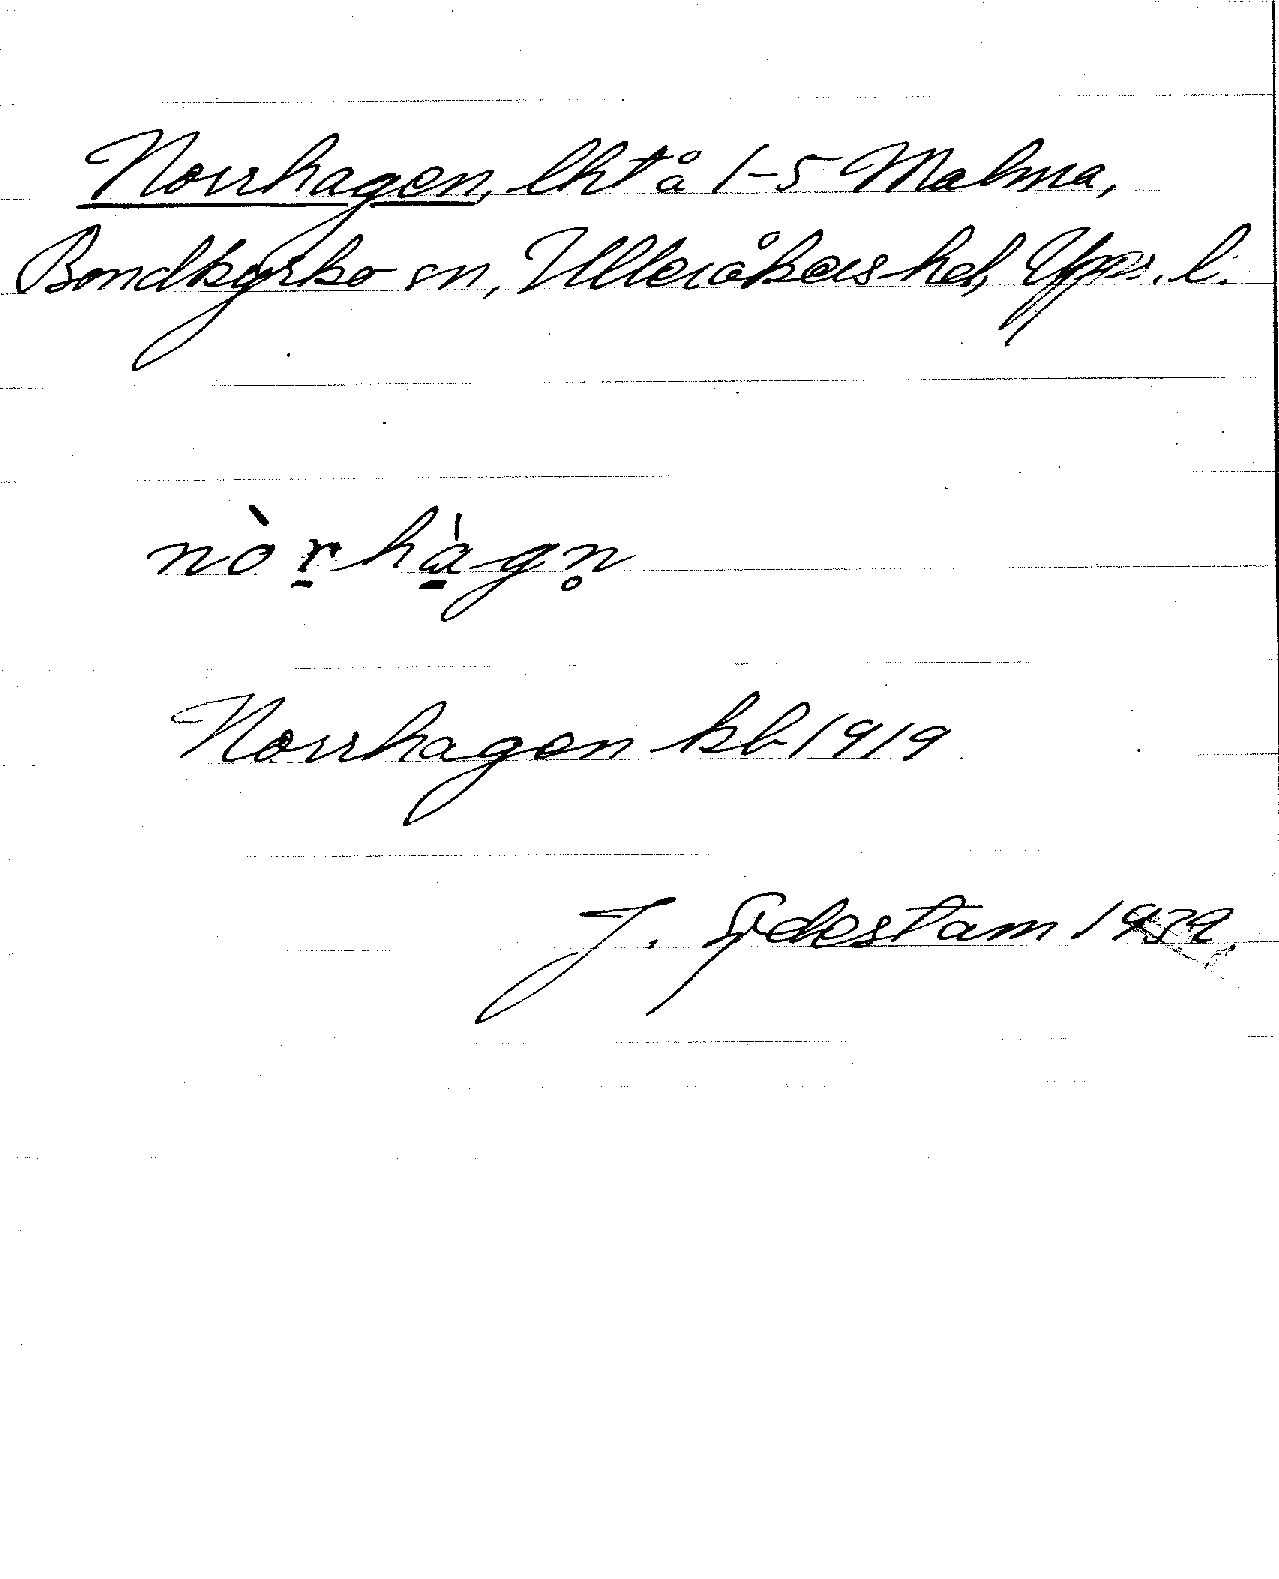 Norrhagen, lht å 1-5 Malma,
Bondkyrko sn, Ulleråkers hd, Upps. l.
nòr̲hà̲gn̥
Norrhagen kb 1919
J. Sydestam 1939.